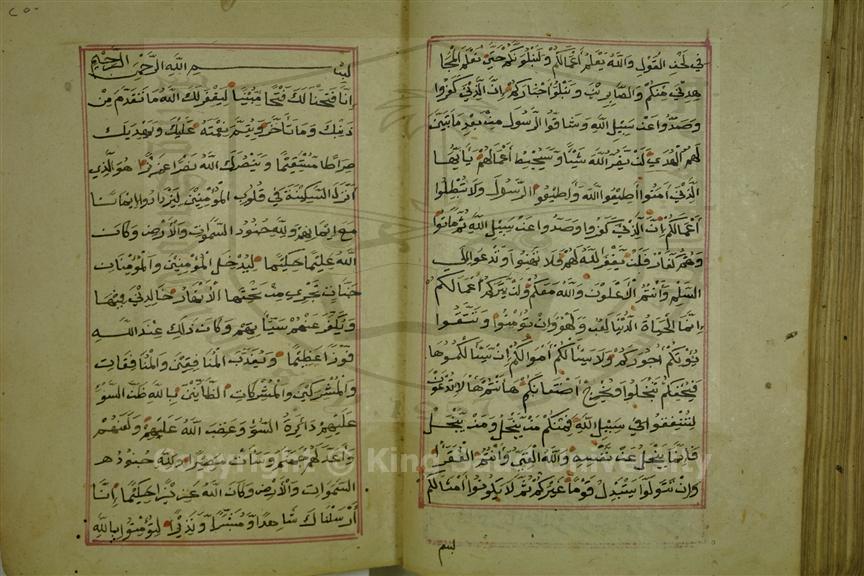 في لحن القول والله يعلم أعمالكم ولنبلونكم حتى نعلم المجا
هدين منكم والصابرين ونبلوا أخباركم إن الذين كفروا
وصدوا عن سبيل الله وشاقوا الرسول من بعد ما تبين
لهم الهدى لن يضروا الله شيئا وسيحبط أعمالهم يا أيها
الذين آمنوا أطيعوا الله وأطيعوا الرسول ولا تبطلوا
أعمالكم إن الذين كفروا وصدوا عن سبيل الله ثم ماتوا
وهم كفار فلن يغفر الله لهم فلا تهنوا وتدعوا إلى
السلم وأنتم الأعلون والله معكم ولن يتركم أعمالكم
إنما الحياة الدنيا لعب ولهو وإن تؤمنوا وتتقوا
يؤتكم أجوركم ولا يسألكم أموالكم إن يسألكموها
فيحفكم تبخلوا ويخرج أضغانكم ها أنتم هؤلاء تدعون
لتنفقوا في سبيل الله فمنكم من يبخل ومن يبخل
فإنما يبخل عن نفسه والله الغني وأنتم الفقراء
وإن تتولوا يستبدل قوما غيركم ثم لا يكونوا أمثالكم
بسم
بسم الله الرحمن الرحيم
إنا فتحنا لك فتحا مبينا ليغفر لك الله ما تقدم من
ذنبك وما تأخر ويتم نعمته عليك ويهديك
صراطا مستقيما وينصرك الله نصرا عزيزا هو الذي
أنزل السكينة في قلوب المؤمنين ليزدادوا إيمانا
مع إيمانهم ولله جنود السموات والأرض وكان
الله عليما حكيما ليدخل المؤمنين والمؤمنات
جنات تجري من تحتها الأنهار خالدين فيها
ويكفر عنهم سيئاتهم وكان ذلك عند الله
فوزا عظيما ويعذب المنافقين والمنافقات
والمشركين والمشركات الظانين بالله ظن السوء
عليهم دائرة السوء وغضب الله عليهم ولعنهم
وأعد لهم جهنم وساءت مصيرا ولله جنود
السموات والأرض وكان الله عزيزا حكيما إنا
أرسلناك شاهدا ومبشرا ونذيرا لتؤمنوا بالله
Copyright © King Saud University